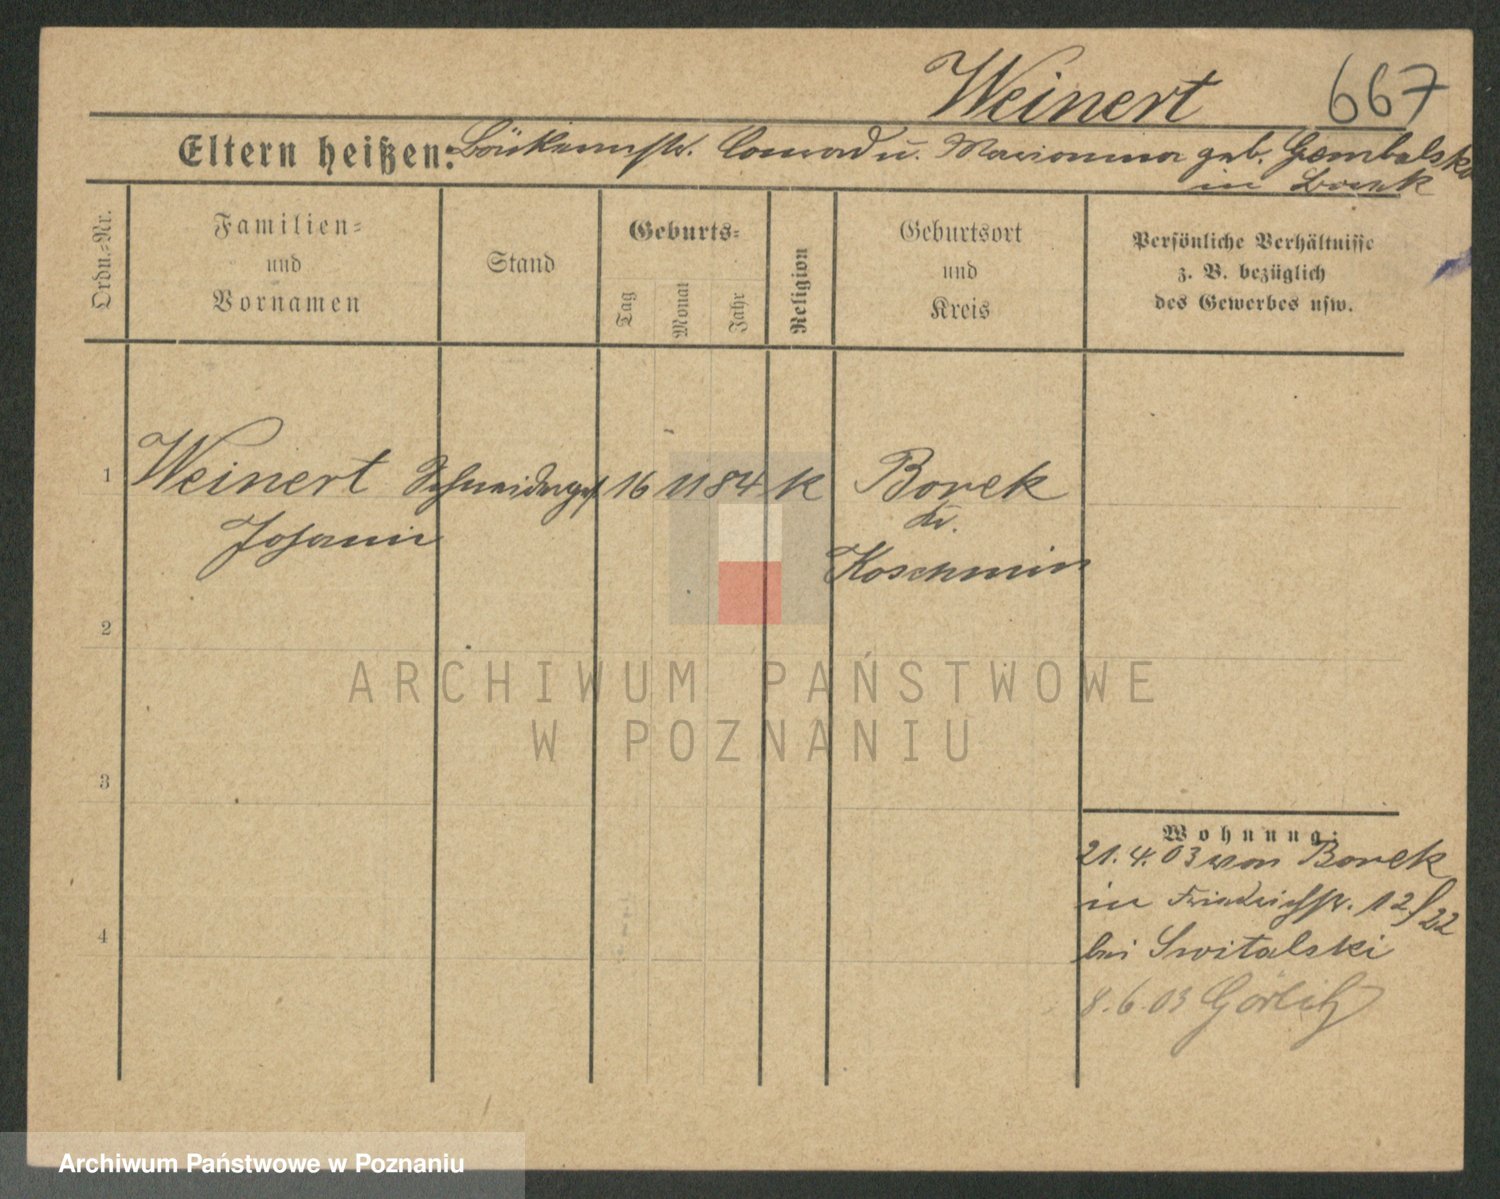 Weinert 667
Eltern heißen: Conrad u. Marianna geb. Gembalska
in Borek
Ordn.-Nr.
Familien-
und
Vornamen
Stand
Geburts-
Tag
Monat
Jahr
Religion
Geburtsort
und
Kreis
Persönliche Verhältnisse
z. B. bezüglich
des Gewerbes usw.
1 Weinert Schneiderges 16 11 84 K Borek
Johann Kr.
Koschmin
2
ARCHIWUM PAŃSTWOWE
W POZNANIU
3
Wohnung:
21.4.03 von Borek
in Friedrichstr. 12/22
4
bei Switalski
8.6.03 Görlitz
Archiwum Państwowe w Poznaniu